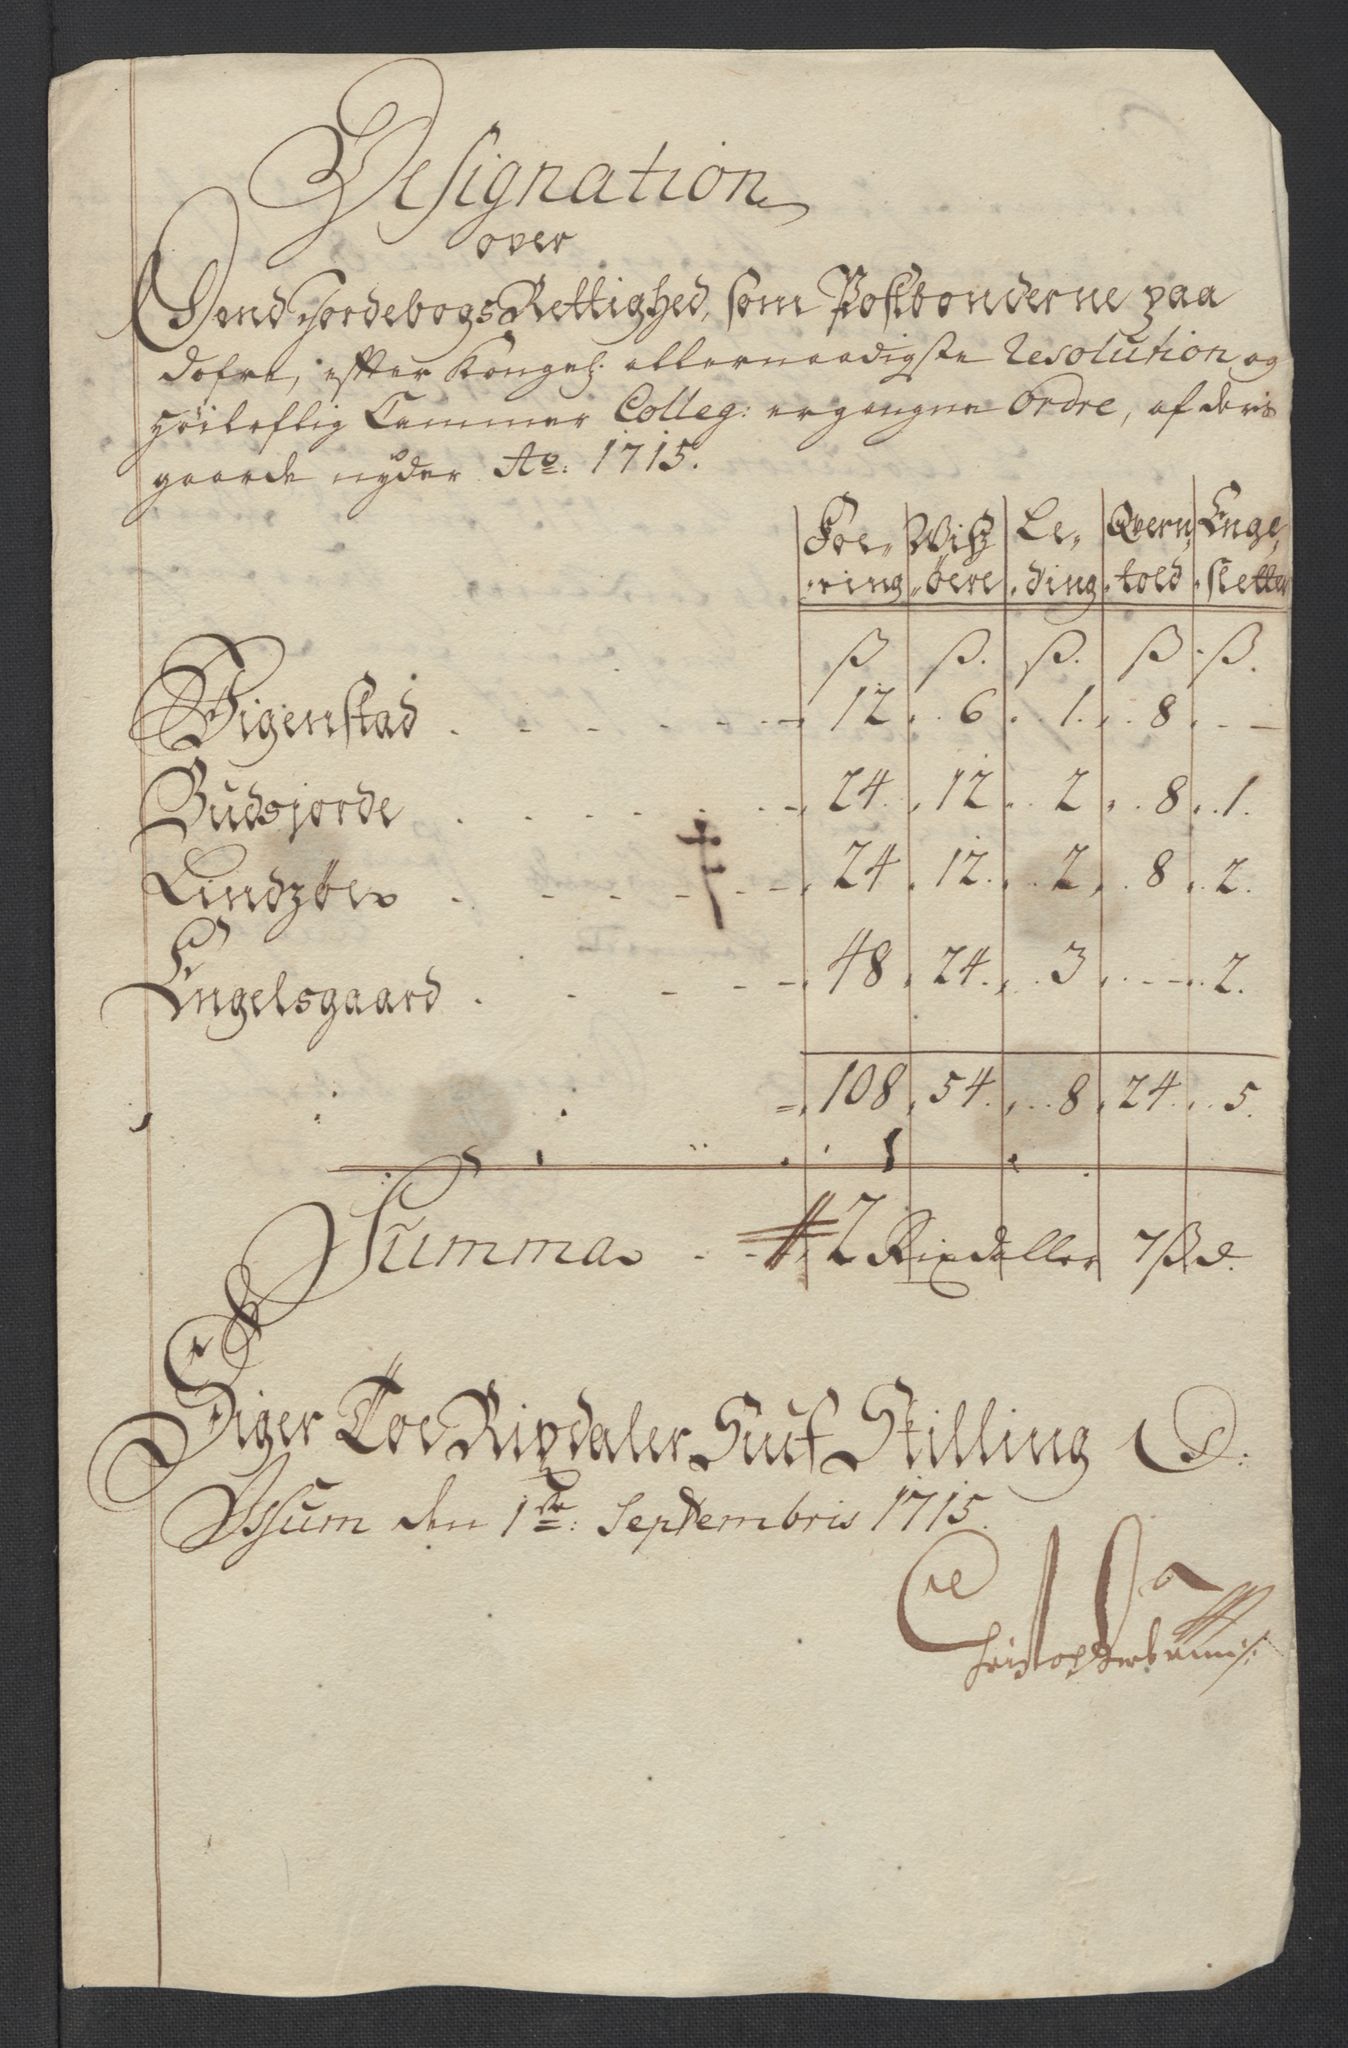 Designation
over
Dend Jordebogs Rettighed, som Postbonderne paa
dofre, efter Kongel: allernaadigste Resolution og
Höÿloflig Cammer Colleg: ergangne Ordre, af deris
gaarde nyder Ao: 1715.
Foe- Wiß Le- Qvern Enge
ring öere ding told sletter
ß ß. ß. ß ß.
Tigenstad 12 6 1 8 -
Budsjorde 24 12 2 8 1.
Lindzöe 24 12 2 8 2.
Engelsgaard 48 24 3 - 2.
108 54 8 24 5.
Summa 2 Rixdaller 7 ß d.
Siger Toe Rixdaler Siuf Skilling D:
Issum den 1ste: Septembris 1715.